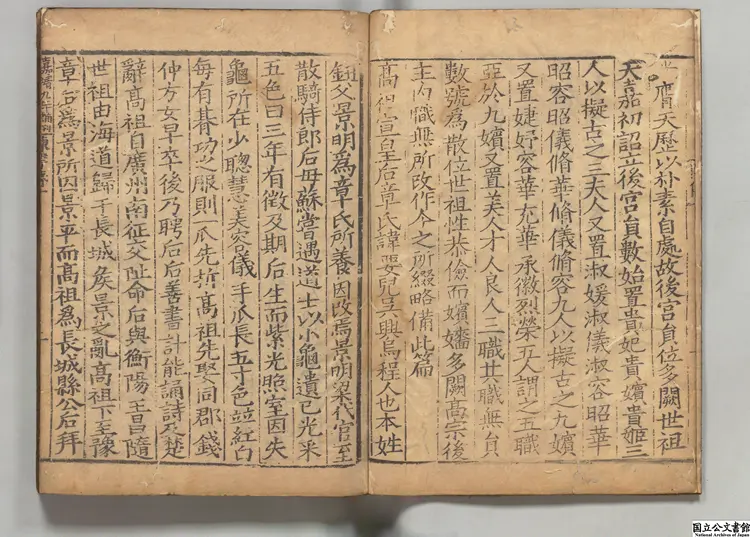 膺天歷以朴素自處故後宮員位多闕世祖
天嘉初詔立後宮員數始置貴妃貴嬪貴姬三
人以擬古之三夫人又置淑媛淑儀淑容昭華
昭容昭儀脩華脩儀脩容九人以擬古之九嬪
又置婕妤容華充華承徽烈榮五人謂之五職
亞於九嬪又置美人才人良人三職其職無員
數號為散位世祖性恭儉而嬪嬙多闕高宗後
主内職無所改作今之所綴略備此篇
高祖宣皇后章氏諱要兒吳興烏程人也本姓
鈕父景明為章氏所養因改焉景明梁代官至
散騎侍郎后母蘇嘗遇道士以小龜遺己光采
五色曰三年有徵及期后生而紫光照室因失
龜所在少聰慧美容儀手爪長五寸色並紅白
每有朞功之服則一爪先折高祖先娶同郡錢
仲方女早卒後乃聘后后善書計能誦詩及楚
辭高祖自廣州南征交阯命后與衡陽王昌隨
世祖由海道歸于長城矦景之亂高祖下至豫
章后為景所囚景平而高祖為長城縣公后拜
嘉靖九年補刊
国立公文書館
National Archives of Japan